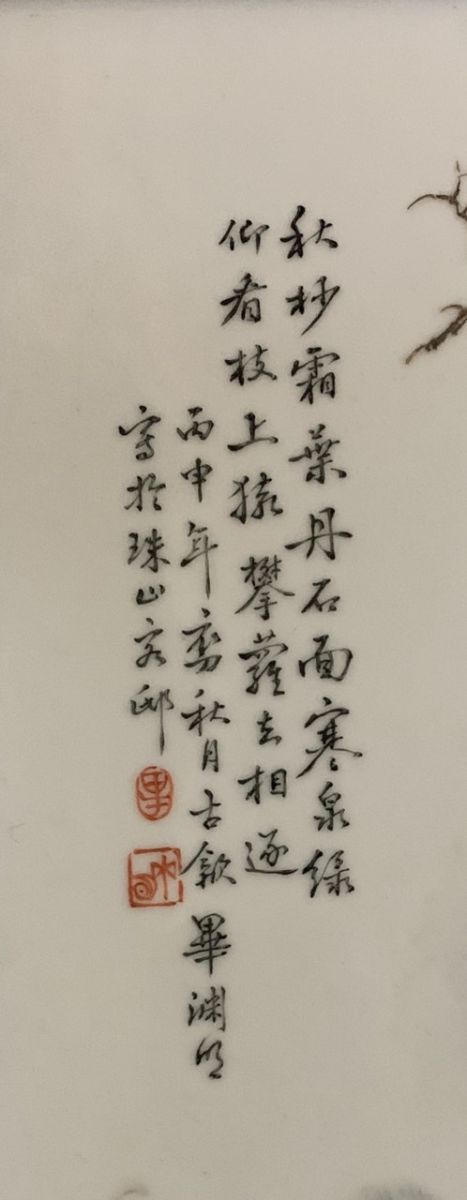 秋杪霜葉丹石面寒泉綠
仰看枝上猿攀蘿去相逐
丙申年
秋月古歙畢渊明
寫於珠山客邸
畢